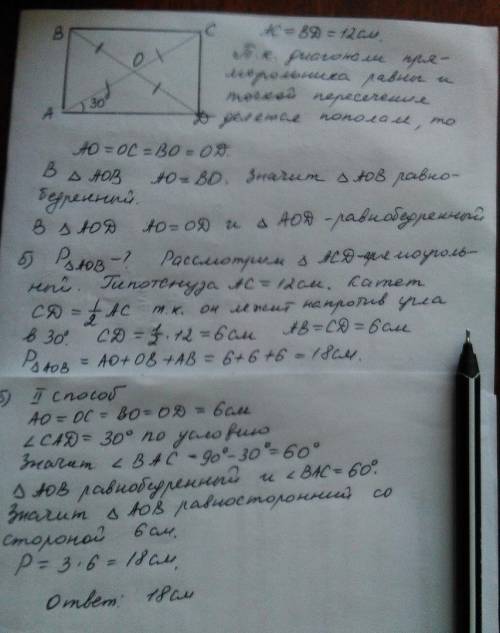 B C
O
A 30° D
AC = BD = 12 см.
Т.к. диагонали пря-
моугольника равны и
точкой пересечения
делятся пополам, то
AO = OC = BO = OD.
В △ AOB AO = BO. Значит △ AOB равно-
бедренный.
В △ AOD AO = OD и △ AOD - равнобедренный
б) P△AOB - ? Рассмотрим △ ACD - прямоуголь-
ный. Гипотенуза AC = 12 см. Катет
CD = 1/2 AC т.к. он лежит напротив угла
в 30°. CD = 1/2 · 12 = 6 см AB = CD = 6 см
P△AOB = AO + OB + AB = 6 + 6 + 6 = 18 см.
б) II способ
AO = OC = BO = OD = 6 см
∠ CAD = 30° по условию
Значит ∠ BAC = 90° - 30° = 60°
△ AOB равнобедренный и ∠ BAC = 60°.
Значит △ AOB равносторонний со
стороной 6 см.
P = 3 · 6 = 18 см.
Ответ: 18 см